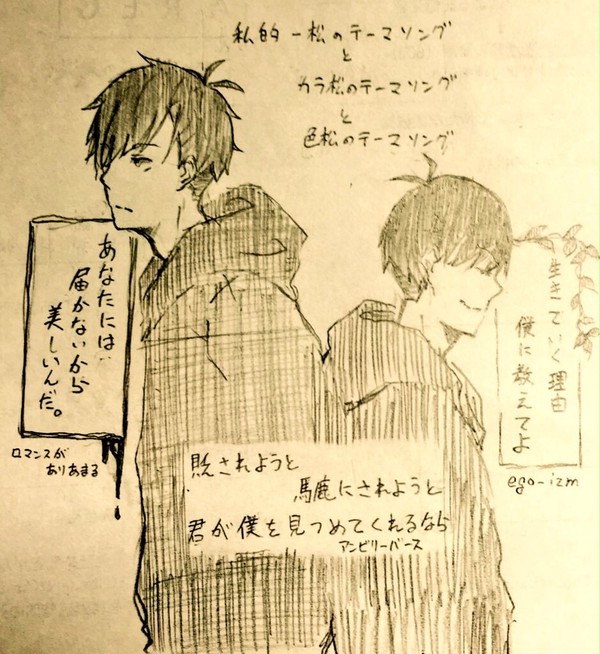 私的一松のテーマソング
と
カラ松のテーマソング
と
色松のテーマソング
あなたには
届かないから
美しいんだ。
ロマンスが
ありあまる
生きていく理由
僕に教えてよ
ego-izm
貶されようと
馬鹿にされようと
君が僕を見つめてくれるなら
アンビリーバース